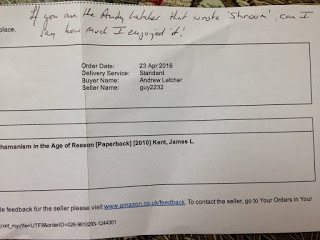 If you are the Andy Letcher that wrote 'Shroom', can I
say how much I enjoyed it!
place.
Order Date: 23 Apr 2016
Delivery Service: Standard
Buyer Name: Andrew Letcher
Seller Name: guy2232
hamanism in the Age of Reason [Paperback] [2010] Kent, James L.
ide feedback for the seller please visit www.amazon.co.uk/feedback. To contact the seller, go to Your Orders in Your